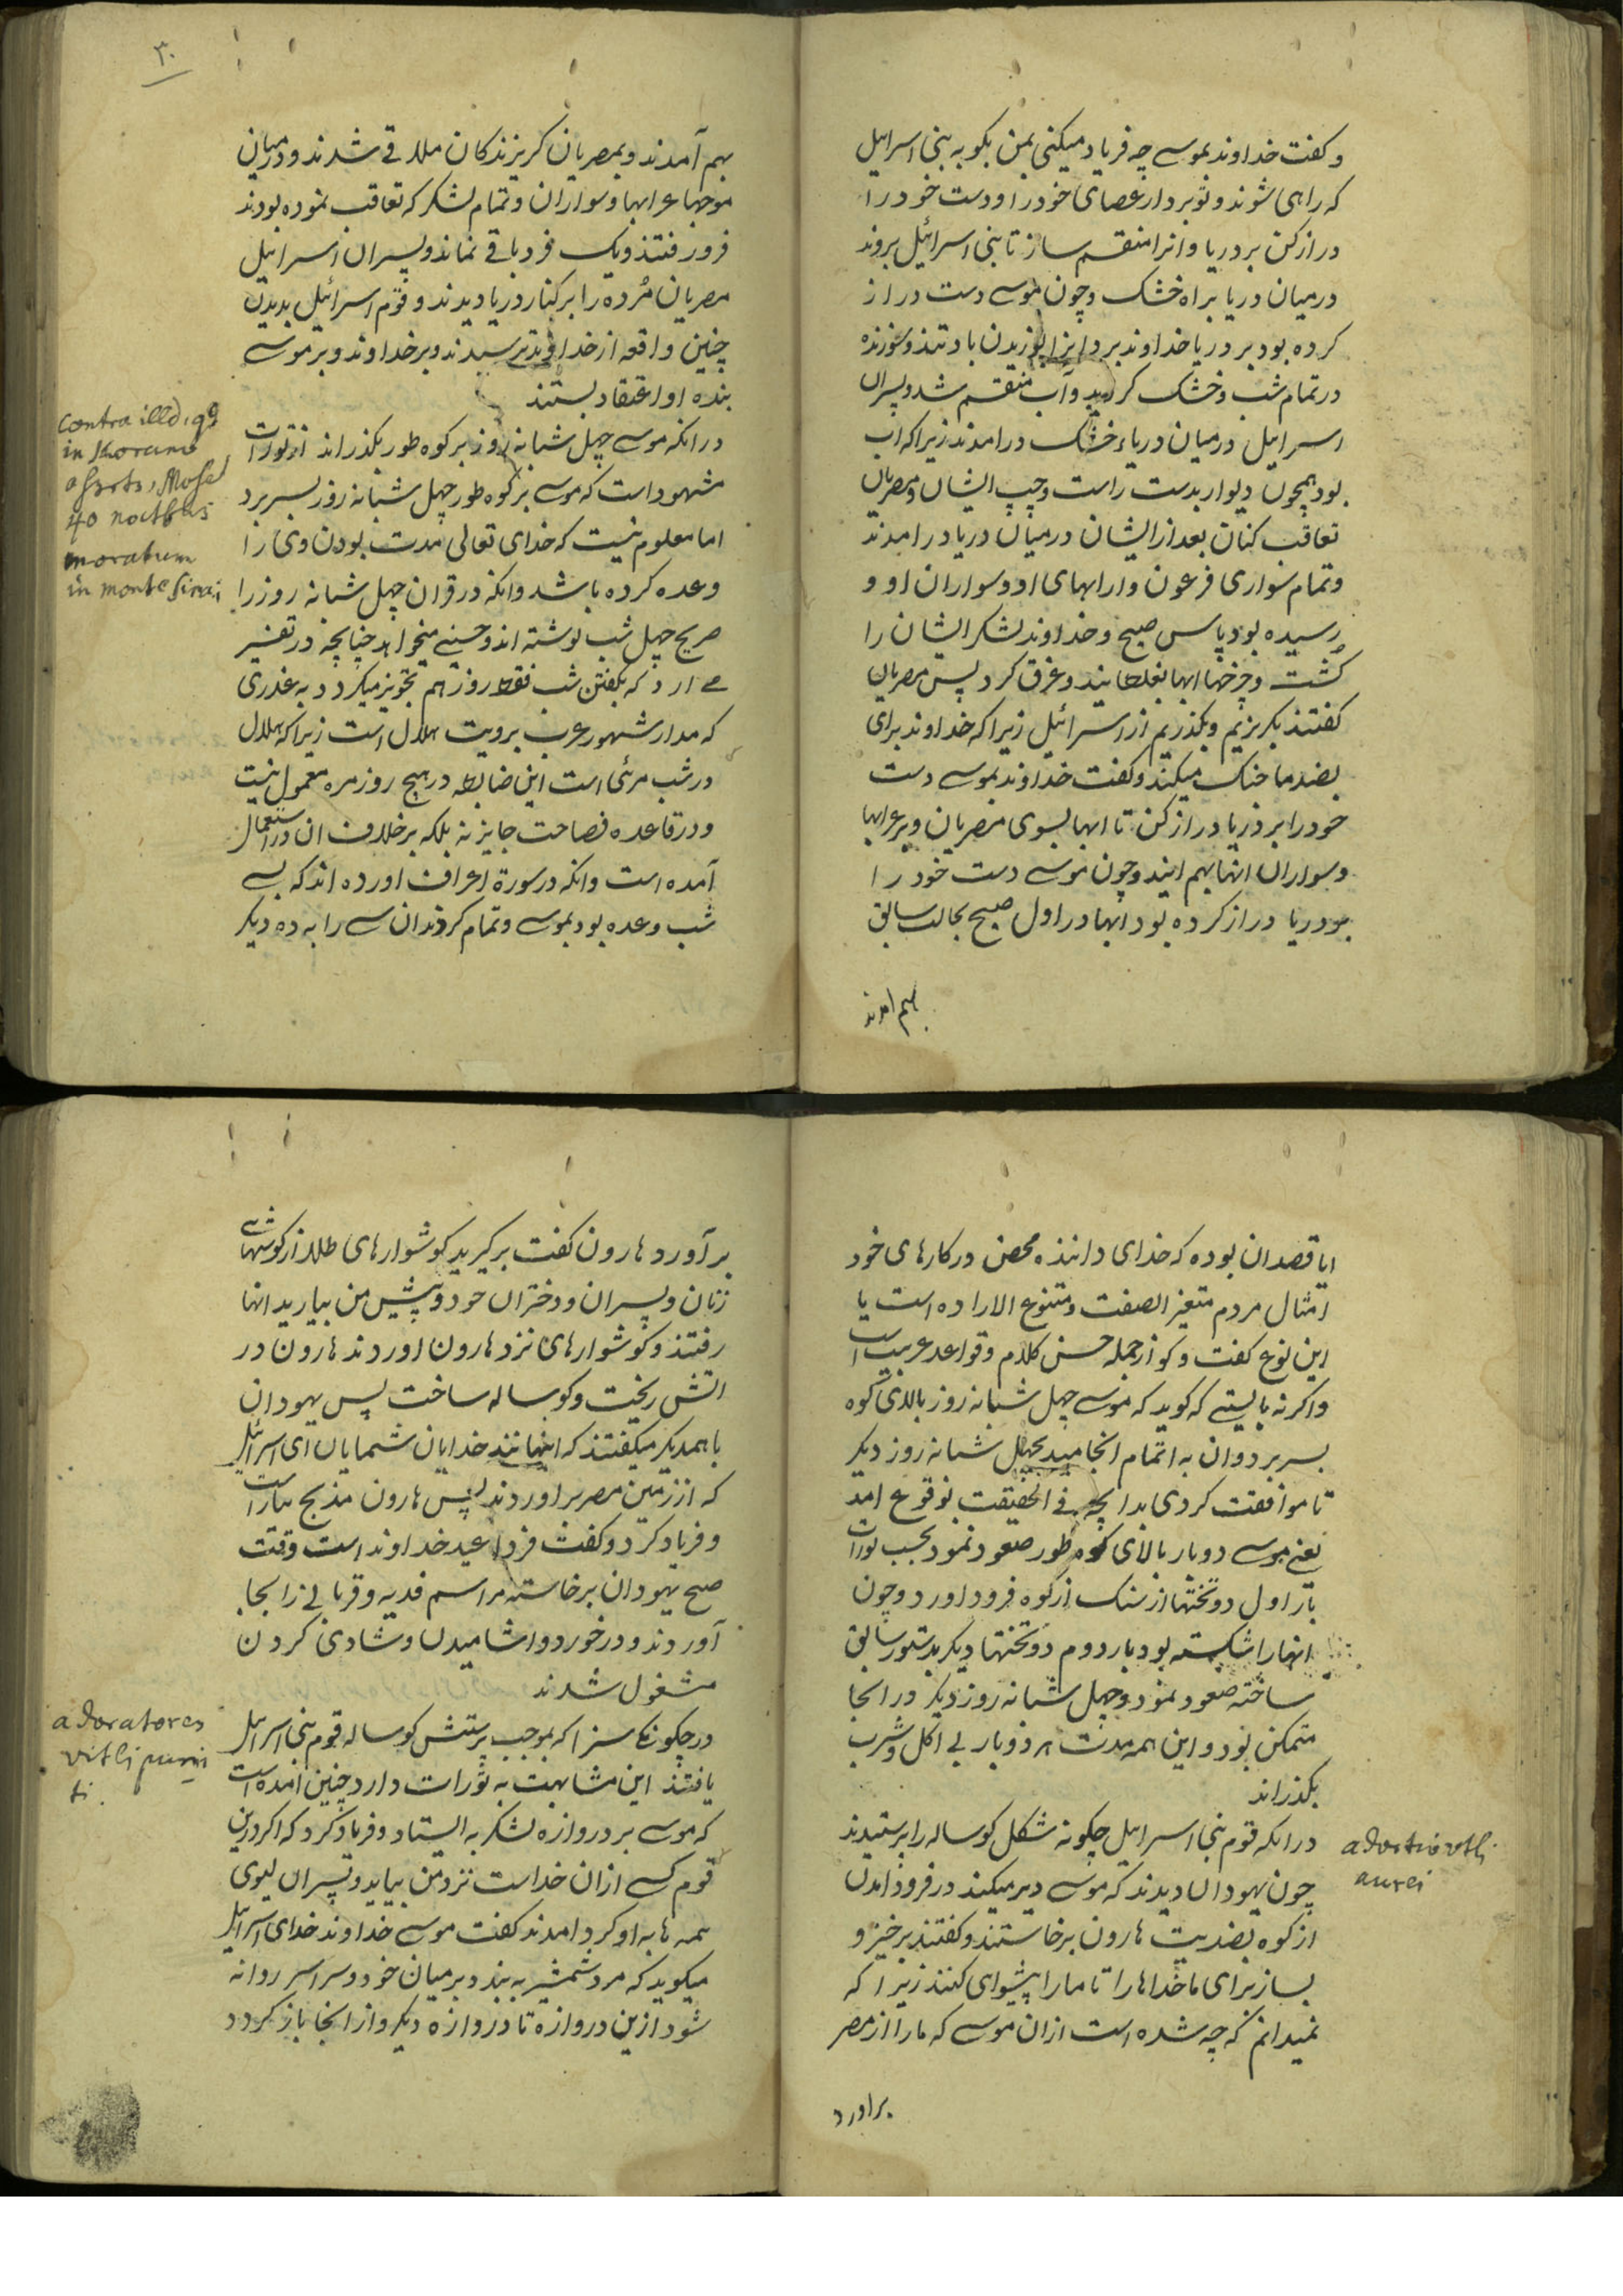 و کفت خداوند بموسے چه فریاد میکنی بمن بکو به بنی اسرایل
که راهی شوند و تو بردار عصای خود را و دست خود را
دراز کن بر دریا و انرا منقسم ساز تا بنی اسرائیل بروند
درمیان دریا براه خشک و چون موسے دست دراز
کرده بود بر دریا خداوند برد انرا بوزیدن باد تند و سوزنده
در تمام شب و خشک کردید و آب منقسم شد و پسران
اسرایل درمیان دریاء خشک درامدند زیرا که اب
بود همچون دیوار بدست راست و چپ ایشان و مصریان
تعاقب کنان بعد از ایشان درمیان دریا درامدند
و تمام سواری فرعون و ارابهای او و سواران او و
رسیده بود پاس صبح و خداوند لشکر ایشان را
کشت و چرخهٔا ابها بغلطانید و غرق کرد پس مصریان
کفتند بکریزیم و بکذریم از اسرائیل زیرا که خداوند برای
بضد ما جنک میکند و کفت خداوند بموسے دست
خود را بر دریا دراز کن تا ابها بسوی مصریان و بر عرابها
و سواران انها بهم ایند و چون موسے دست خود را
بر دریا دراز کرده بود ابها در اول صبح بحالت سابق
بهم امدند
۳۰
بهم آمدند و بمصریان کریزندکان ملاقے شدند و درمیان
موجها عرابها و سواران و تمام لشکر که تعاقب نموده بودند
فرو رفتند و یک فرد باقے نماند و پسران اسرایل
مصریان مُرده را بر کنار دریا دیدند و قوم اسرائیل بدیدن
چنین واقعه از خداوند ترسیدند و بر خداوند و بر موسے
بنده او اعتقاد بستند
در انکه موسے چهل شبانه روز بر کوه طور بکذراند از تورات
مشهود است که موسے بر کوه طور چهل شبانه روز بسر برد
اما معلوم نیست که خدای تعالی مدت بودن وی را
وعده کرده باشد و انکه در قران چهل شبانه روز را
صریح چهل شب نوشته اند و حسینے میخواهد چنانچه در تفسیر
مے ارد که بکفتن شب فقط روز هم تجویز میکردد به عذری
که مدار شهور عرب برویت هلال است زیرا که هلال
در شب مرئی است این ضابطه در هیچ روزمره معمول نیست
و در قاعده فصاحت جایز نه بلکه برخلاف ان در استعمال
آمده است و انکه در سورة اعراف اورده اند که سے
شب وعده بود بموسے و تمام کردند ان سے را به ده دیکر
contra illd, qd
in Korano
asserts, Mosel
40 noctbus
moratum
in monte Sinai
ایا قصد ان بوده که خدای داننده محض در کارهای خود
امثال مردم متغیر الصفت و متنوع الاراده است یا
این نوع کفت و کو از جمله حسن کلام و قواعد عربیت است
و اکر نه بایستے که کوید که موسے چهل شبانه روز بالای کوه
بسر برد و ان به اتمام انجامید بچهل شبانه روز دیکر
تا موافقت کردی بدانچه فی الحقیقت بوقوع امد
یعنے موسے دوبار بالای کوه طور صعود نمود بحسب تورات
بار اول دو تختها از سنک از کوه فرود اورد و چون
انها را شکسته بود بار دوم دو تختها دیکر بدستور سابق
ساخته صعود نمود و چهل شبانه روز دیکر در انجا
متمکن بود و این همه مدت هر دو بار بے اکل و شرب
بکذراند
در انکه قوم بنی اسرایل چکونه شکل کوساله را پرستیدند
چون یهودان دیدند که موسے دیر میکند در فرود امدن
از کوه بضدیت هارون برخاستند و کفتند برخیز و
بساز برای ما خداها را تا ما را پیشوای کنند زیرا که
نمیدانم که چه شده است ازان موسے که ما را از مصر
براورد
adoratio vitli
aurei
بر آورد هارون کفت برکیرید کوشوارهای طلا از کوشهای
زنان و پسران و دختران خود و پیش من بیارید انها
رفتند و کوشوارهای نزد هارون اوردند هارون در
اتش ریخت و کوساله ساخت پس یهودان
با همدیکر میکفتند که اینهانند خدایان شمایان ای اسرائیل
که از زمین مصر براوردند پس هارون مذبح بیاراست
و فریاد کرد و کفت فردا عید خداوند است وقت
صبح یهودان برخاسته مراسم فدیه و قربانے را بجا
آوردند و در خورد و اشامیدن و شادی کردن
مشغول شدند
در چکونکے سزا که بموجب پرستش کوساله قوم بنی اسرائیل
یافتند این مشابهت به تورات دارد چنین امده است
که موسے بر دروازه لشکر به ایستاد و فریاد کرد که اکر درین
قوم کسے ازان خداست نزد من بیاید و پسران لیوی
همه ها به او کرد امدند کفت موسے خداوند خدای اسرائیل
میکوید که مرد شمشیر به بندد بر میان خود و سراسر روانه
شود ازین دروازه تا دروازه دیکر و از انجا باز کردد
adoratores
vitli puni
ti.